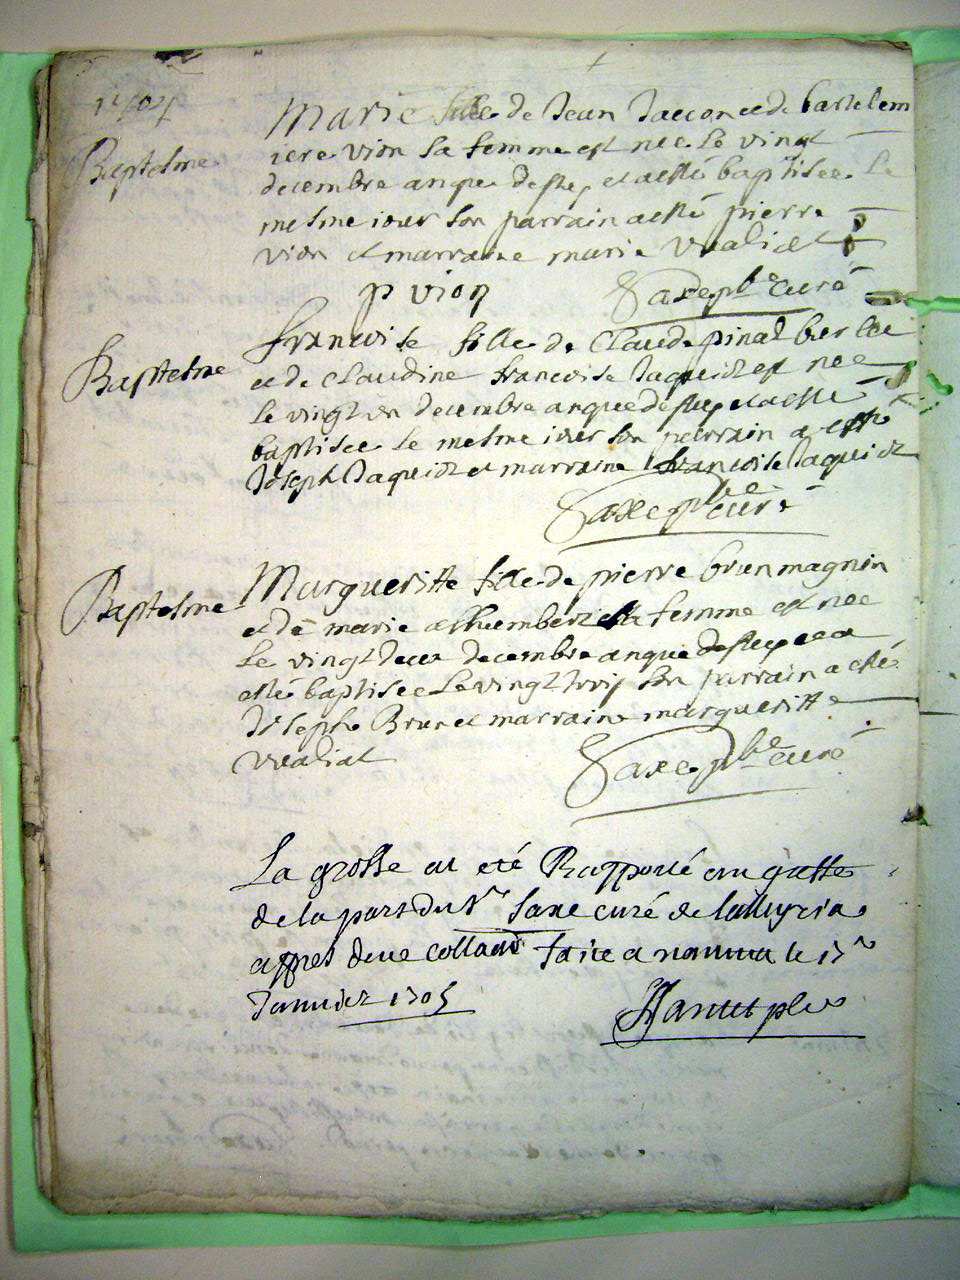 1704
Baptesme
Marie fille de Jean Jaccon et de bartelem
iere vion sa femme est nee le vingt
decembre an que dessus et a esté baptisee le
mesme iour son parrain a esté pierre
vion et marraine marie vualiet
p vion
Saxe pbre curé
Baptesme
francoise fille de Claude pinat
et de Claudine francoise Jaquiot est nee
le vingt un decembre an que dessus et a esté
baptisee le mesme iour son parrain a esté
Joseph Jaquiot et marraine francoise Jaquiot
Saxe pbre curé
Baptesme
Margueritte fille de pierre brun magnin
et de marie humbert sa femme est nee
le vingt deux decembre an que dessus et a
esté baptisee le vingt trois son parrain a esté
Joseph Brun et marraine margueritte
vualiet
Saxe pbre curé
La grosse a eté Rapporté au greffe
de la part du Sr Saxe curé de
appres deue faite a nantua le 15e
Janvier 1705